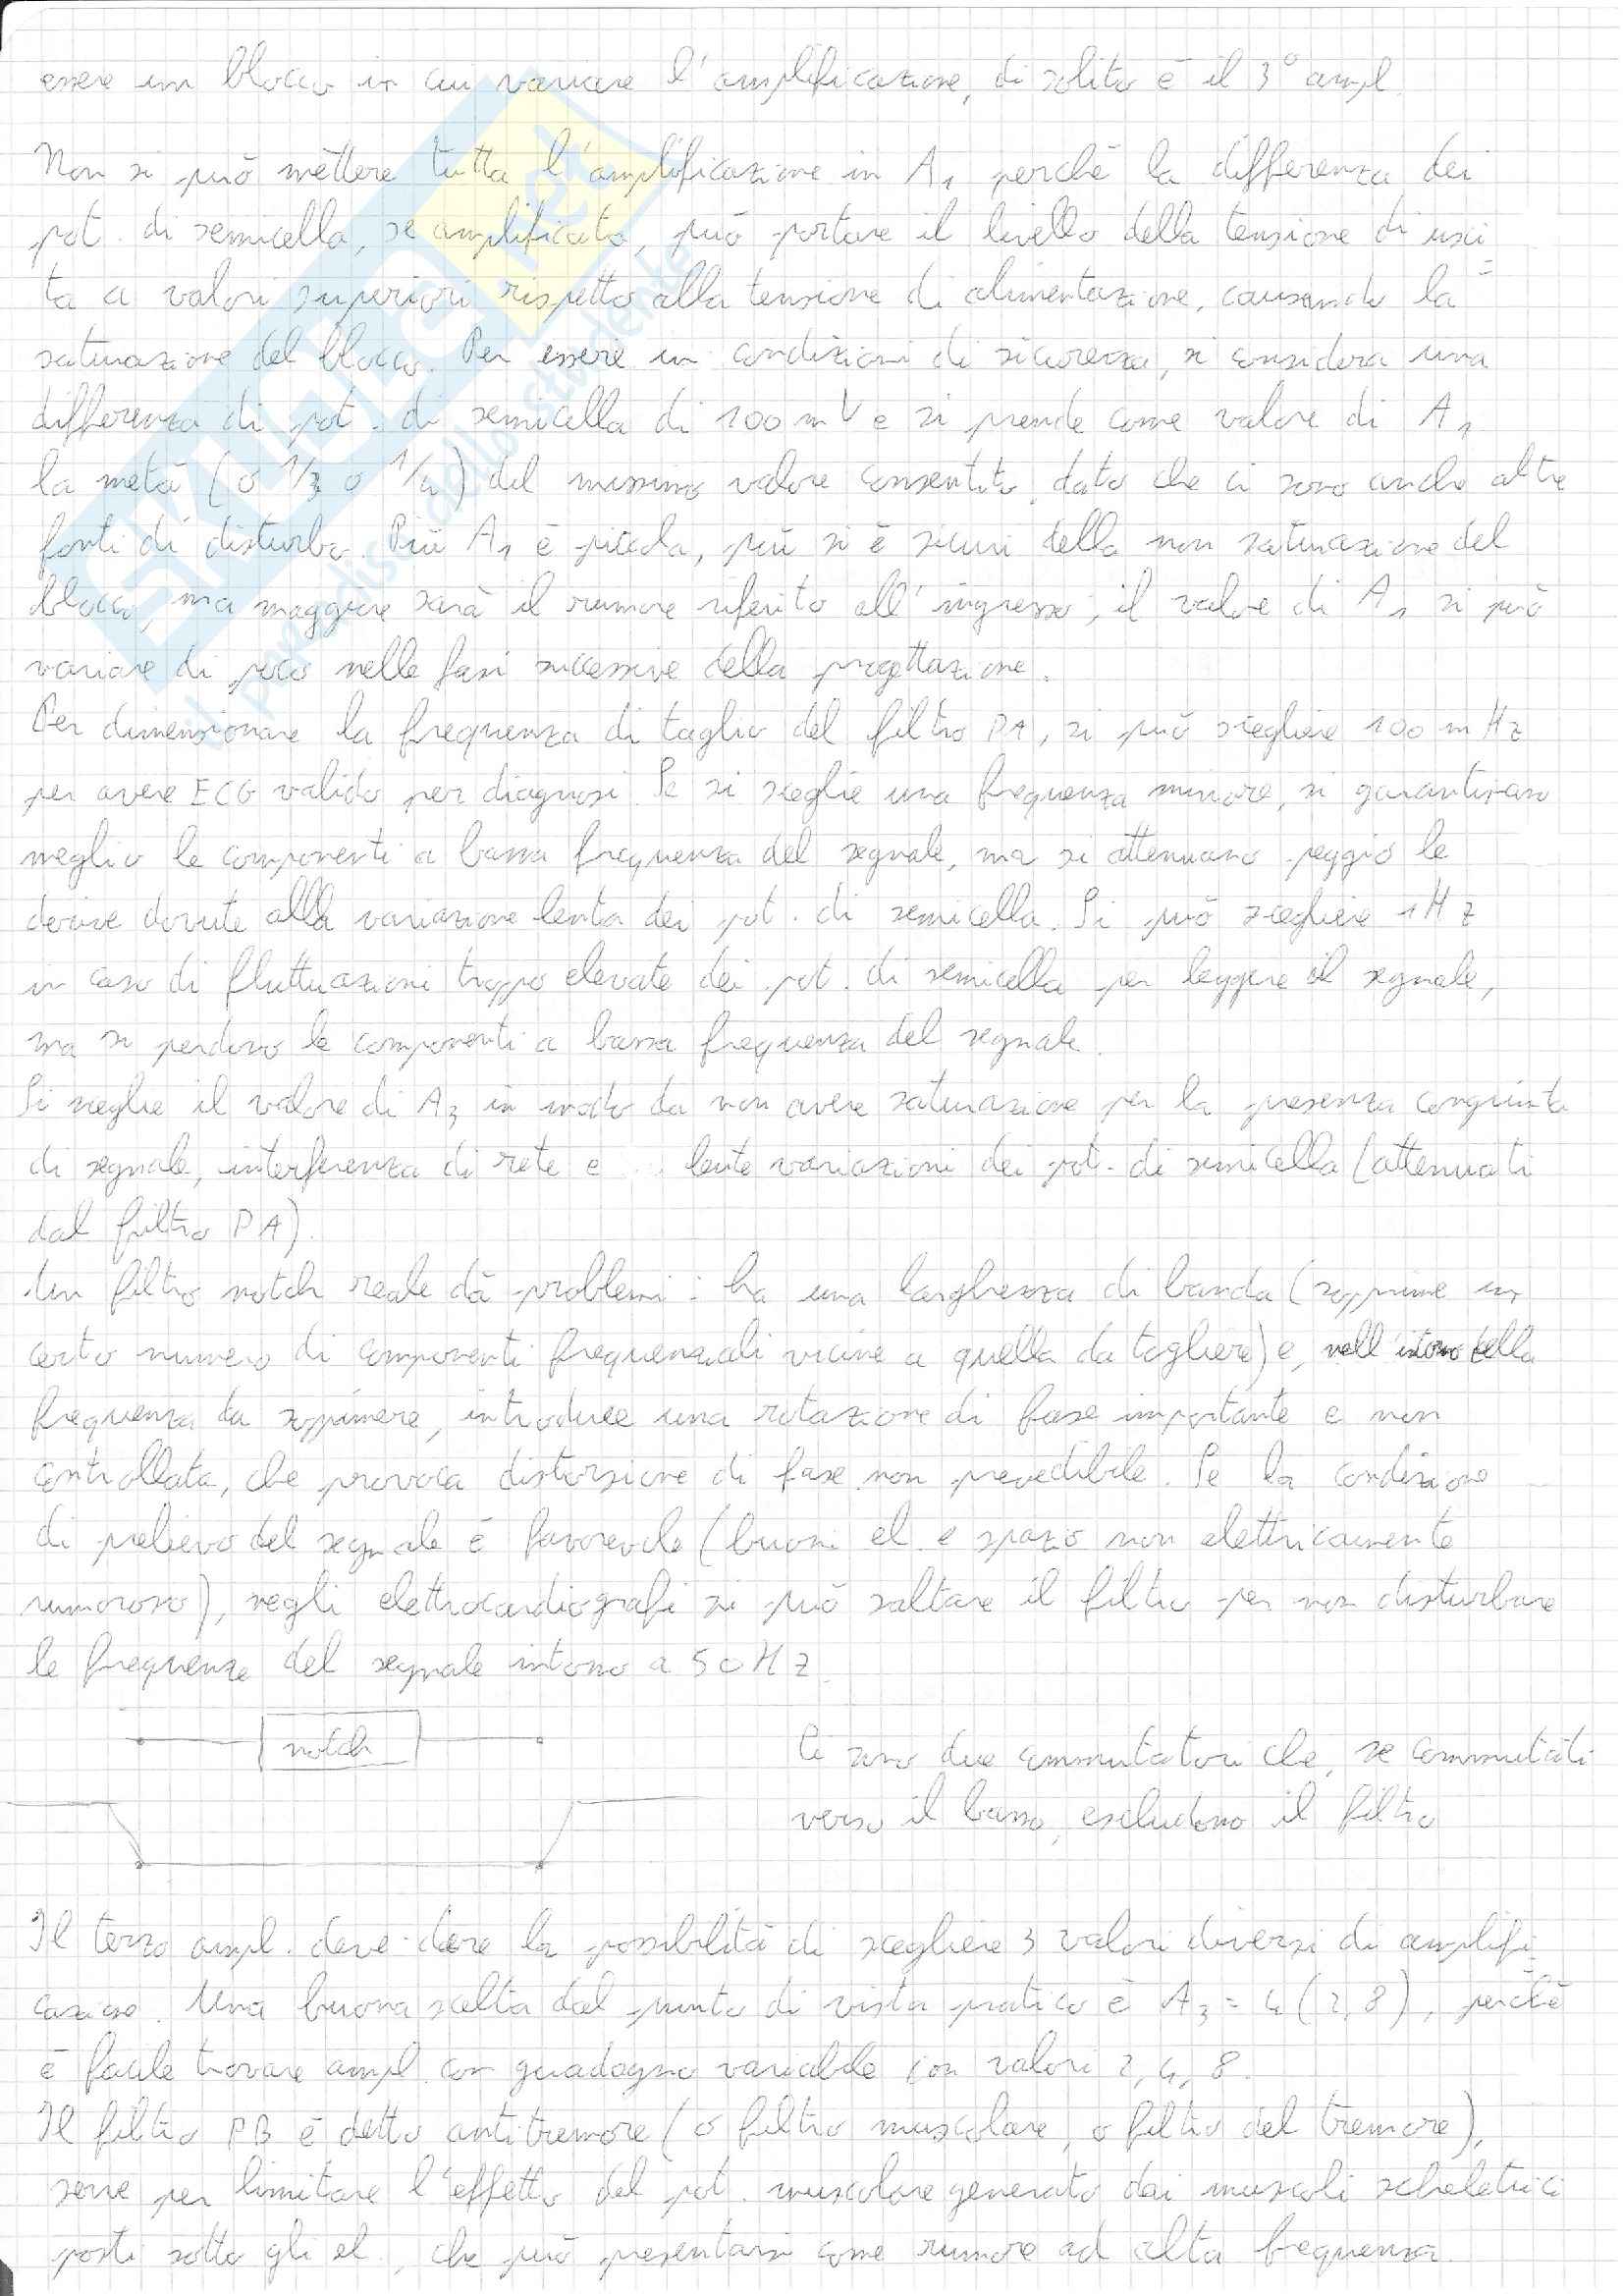 essere un blocco in cui variare l'amplificazione, di solito è il 3° ampl.
Non si può mettere tutta l'amplificazione in A1 perchè la differenza dei
pot. di semicella, se amplificata, può portare il livello della tensione di usci
ta a valori superiori rispetto alla tensione di alimentazione, causando la
saturazione del blocco. Per essere in condizioni di sicurezza, si considera una
differenza di pot. di semicella di 100 mV e si prende come valore di A1
la metà (o 1/3 o 1/4) del massimo valore consentito, dato che ci sono anche altre
fonti di disturbo. Più A1 è piccola, più si è sicuri della non saturazione del
blocco, ma maggiore sarà il rumore riferito all'ingresso; il valore di A1 si può
variare di poco nelle fasi successive della progettazione.
Per dimensionare la frequenza di taglio del filtro PA, si può scegliere 100 mHz
per avere ECG valido per diagnosi. Se si sceglie una frequenza minore, si garantiscono
meglio le componenti a bassa frequenza del segnale, ma si attenuano peggio le
derive dovute alla variazione lenta dei pot. di semicella. Si può scegliere 1Hz
in caso di fluttuazioni troppo elevate dei pot. di semicella per leggere il segnale,
ma si perdono le componenti a bassa frequenza del segnale.
Si sceglie il valore di A2 in modo da non avere saturazione per la presenza congiunta
di segnale, interferenza di rete e lente variazioni dei pot. di semicella (attenuati
dal filtro PA).
Un filtro notch reale dà problemi: ha una larghezza di banda (sopprime un
certo numero di componenti frequenziali vicine a quella da togliere) e, nell'intorno della
frequenza da sopprimere, introduce una rotazione di fase importante e non
controllata, che provoca distorsione di fase non prevedibile. Se la condizione
di prelievo del segnale è favorevole (buoni el. e spazio non elettricamente
rumoroso), negli elettrocardiografi si può saltare il filtro per non disturbare
le frequenze del segnale intorno a 50Hz.
notch
Ci sono due commutatori che, se commutati
verso il basso, escludono il filtro
Il terzo ampl. deve dare la possibilità di scegliere 3 valori diversi di amplifi
cazione. Una buona scelta dal punto di vista pratico è A3 = 4 (2, 8), perchè
è facile trovare ampl. con guadagno variabile con valori 2, 4, 8.
Il filtro PB è detto antitremore (o filtro muscolare, o filtro del tremore),
serve per limitare l'effetto del pot. muscolare generato dai muscoli scheletrici
posti sotto gli el., che può presentarsi come rumore ad alta frequenza.